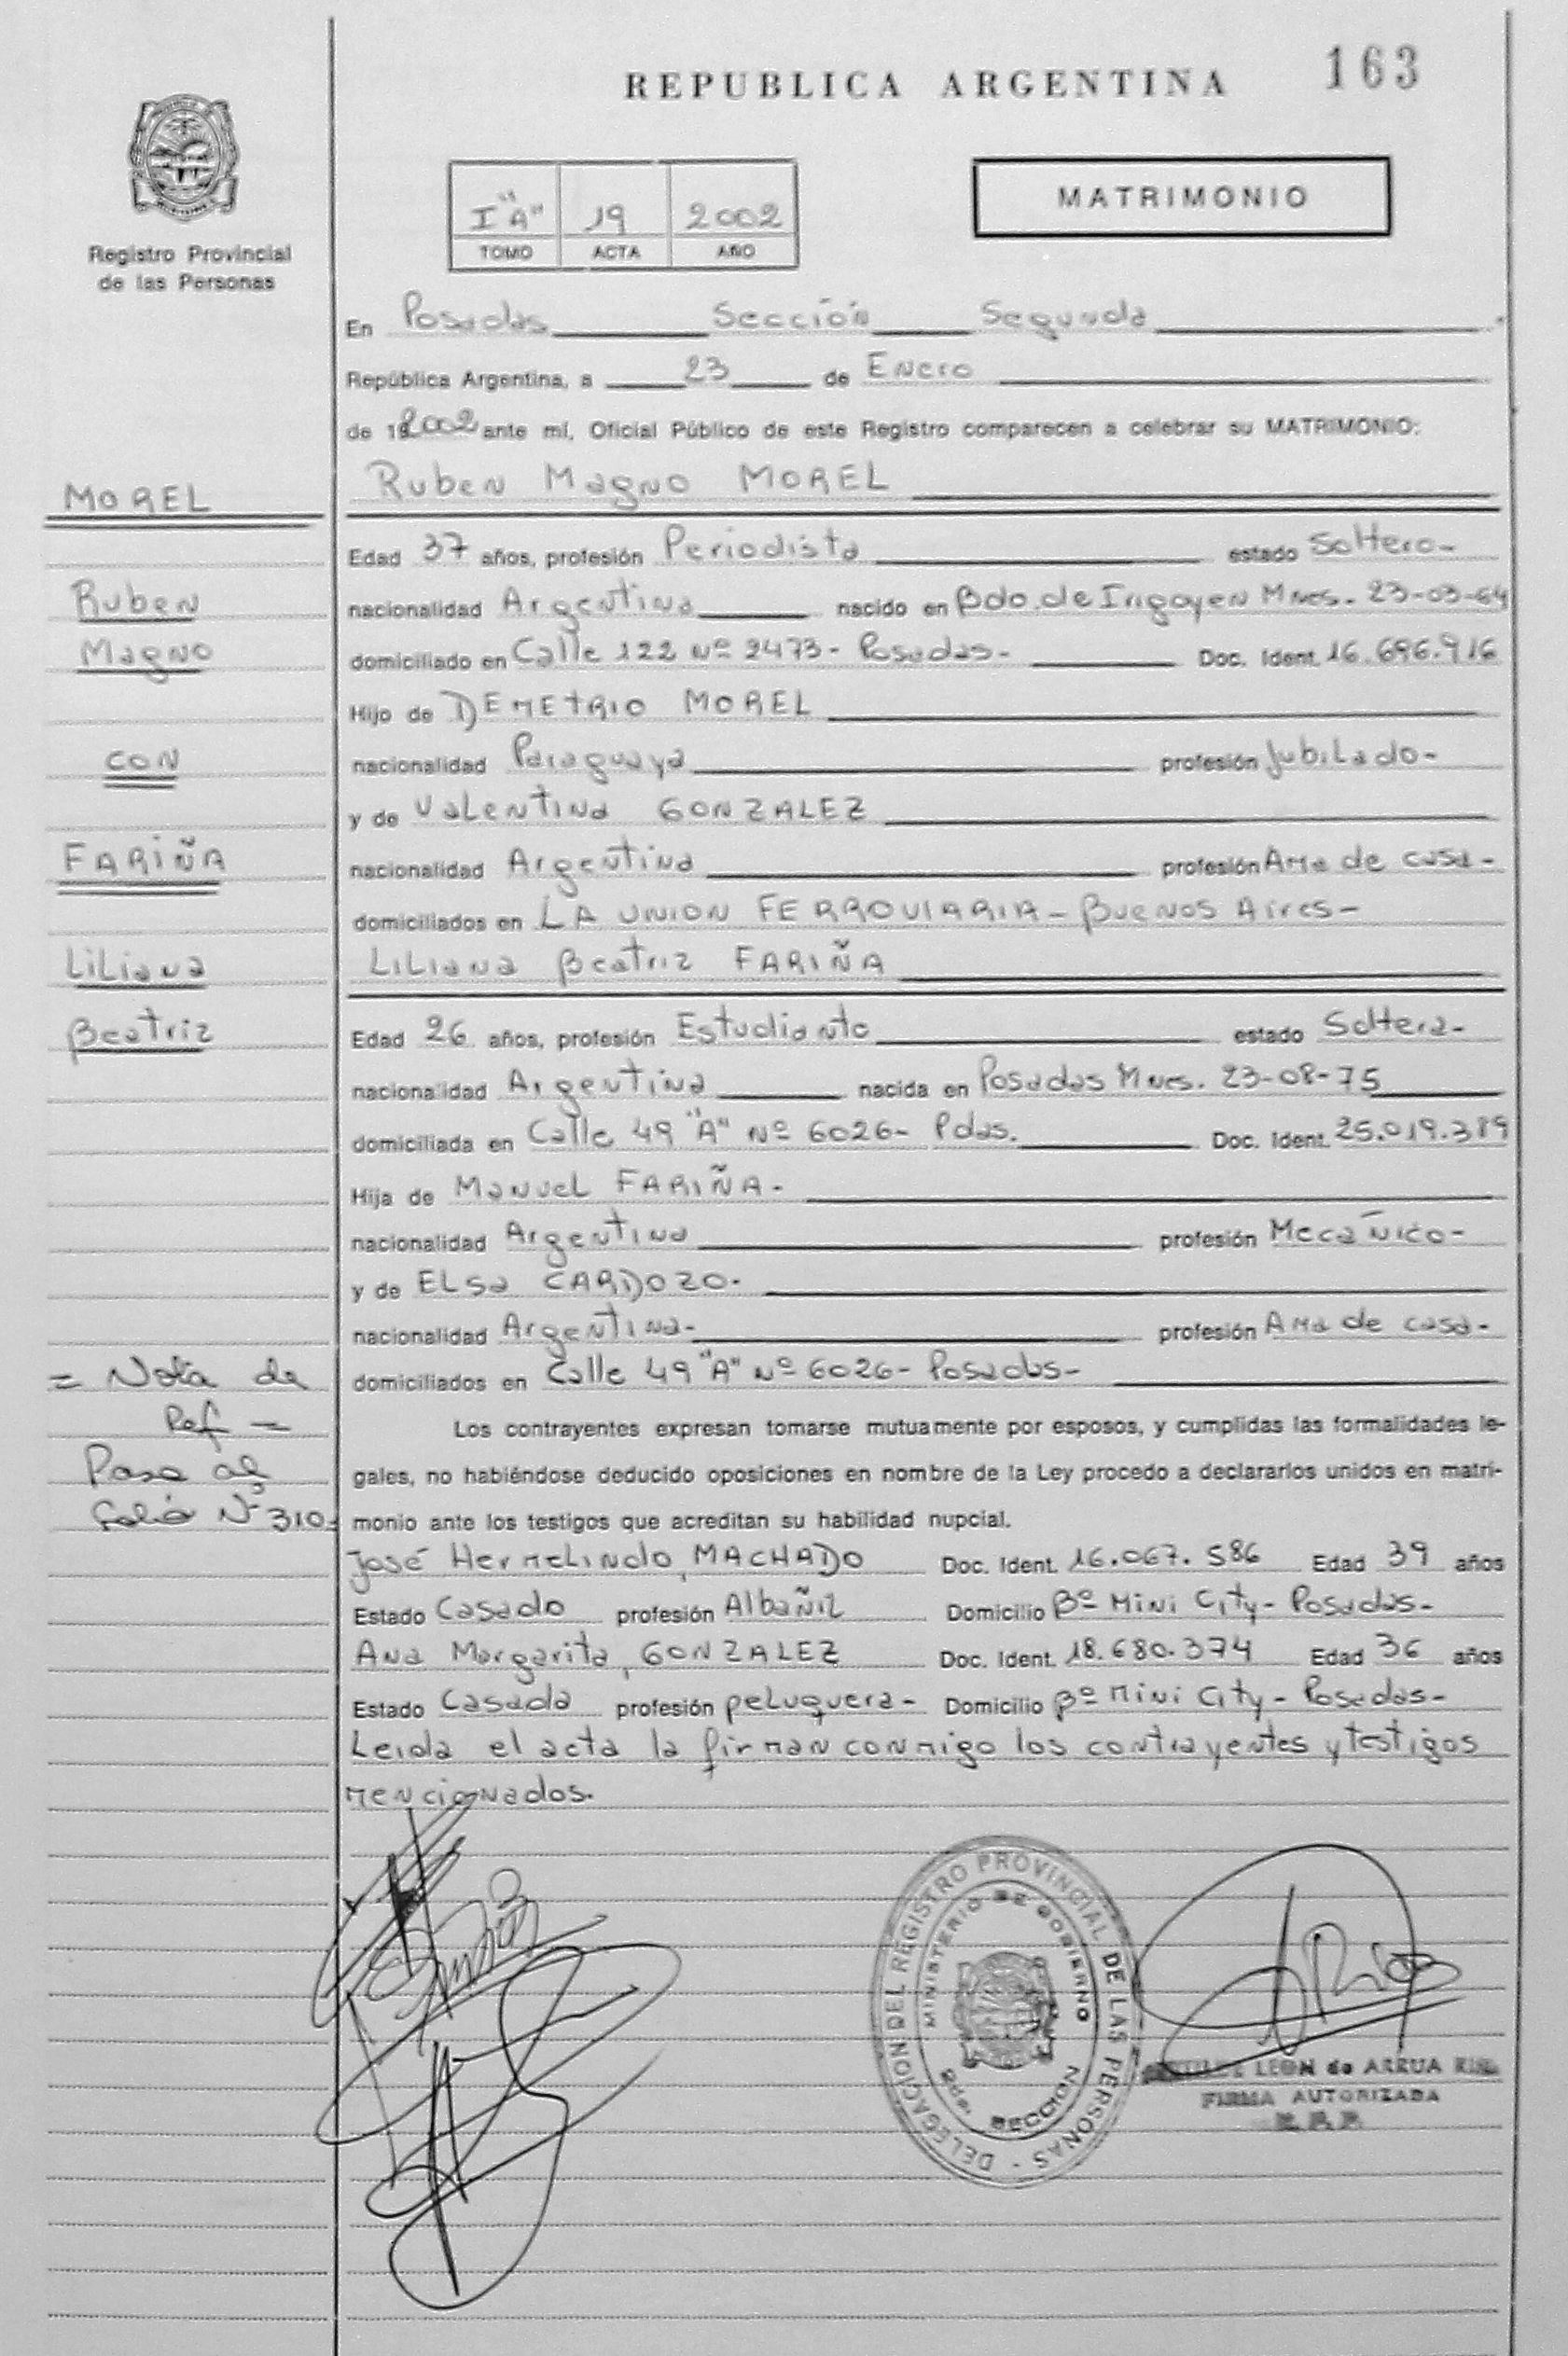 REPUBLICA ARGENTINA 163
Registro Provincial
de las Personas
I "A" 19 2002
TOMO ACTA AÑO
MATRIMONIO
En Posadas Sección Segunda
República Argentina, a 23 de Enero
de 192002 ante mí, Oficial Público de este Registro comparecen a celebrar su MATRIMONIO:
MOREL
Ruben Magno MOREL
Edad 37 años, profesión Periodista estado Soltero-
Ruben
nacionalidad Argentina nacido en Bdo. de Irigoyen Mnes. 23-03-64
Magno
domiciliado en Calle 122 Nº 2473- Posadas- Doc. Ident. 16.696.916
Hijo de DEMETRIO MOREL
con
nacionalidad Paraguaya profesión Jubilado-
y de Valentina GONZALEZ
FARIÑA
nacionalidad Argentina profesión Ama de casa-
domiciliados en LA UNION FERROVIARIA- Buenos Aires-
Liliana
Liliana Beatriz FARIÑA
Beatriz
Edad 26 años, profesión Estudiante estado Soltera-
nacionalidad Argentina nacida en Posadas Mnes. 23-08-75
domiciliada en Calle 49 "A" Nº 6026- Pdas. Doc. Ident. 25.019.389
Hija de Manuel FARIÑA-
nacionalidad Argentina profesión Mecánico-
y de ELSA CARDOZO-
nacionalidad Argentina- profesión Ama de casa-
= Nota de
domiciliados en Calle 49 "A" Nº 6026- Posadas-
Ref =
Los contrayentes expresan tomarse mutuamente por esposos, y cumplidas las formalidades le-
Pasa al
gales, no habiéndose deducido oposiciones en nombre de la Ley procedo a declararlos unidos en matri-
folio Nº 310-
monio ante los testigos que acreditan su habilidad nupcial.
José Hermelindo, MACHADO Doc. Ident. 16.067.586 Edad 39 años
Estado Casado profesión Albañil Domicilio Bº Mini City- Posadas-
Ana Margarita, GONZALEZ Doc. Ident. 18.680.374 Edad 36 años
Estado Casada profesión peluquera- Domicilio Bº Mini City- Posadas-
Leida el acta la firman conmigo los contrayentes y testigos
mencionados.
DELEGACION DEL REGISTRO PROVINCIAL DE LAS PERSONAS
MINISTERIO DE GOBIERNO
SECCION
LEON de ARRUA
FIRMA AUTORIZADA